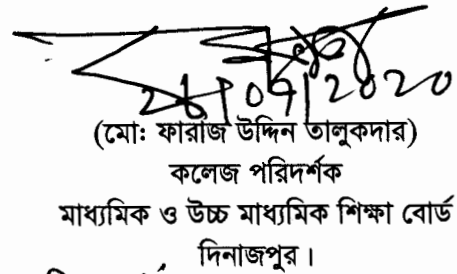 (মো: ফারাজ উদ্দিন তালুকদার)
কলেজ পরিদর্শক
মাধ্যমিক ও উচ্চ মাধ্যমিক শিক্ষা বোর্ড
দিনাজপুর।